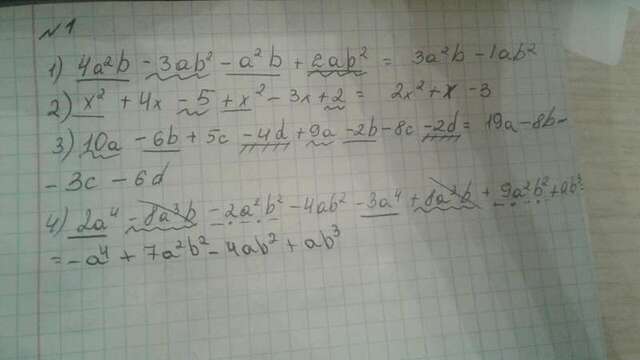 №1
1) 4a²b - 3ab² - a²b + 2ab² = 3a²b - 1ab²
2) x² + 4x - 5 + x² - 3x + 2 = 2x² + x - 3
3) 10a - 6b + 5c - 4d + 9a - 2b - 8c - 2d = 19a - 8b -
- 3c - 6d
4) 2a⁴ - 8a³b - 2a²b² - 4ab² - 3a⁴ + 8a³b + 9a²b² + ab³
= - a⁴ + 7a²b² - 4ab² + ab³